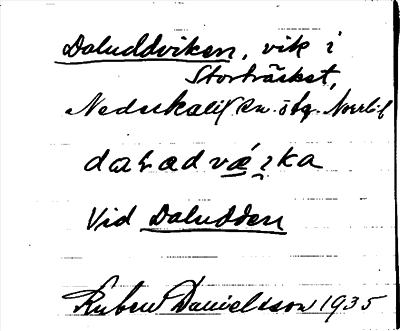 Daluddviken, vik i
Storträsket,
Nederkalix sn. ötg. Norrb.l
Vid Daludden
Ruben Danielsson 1935